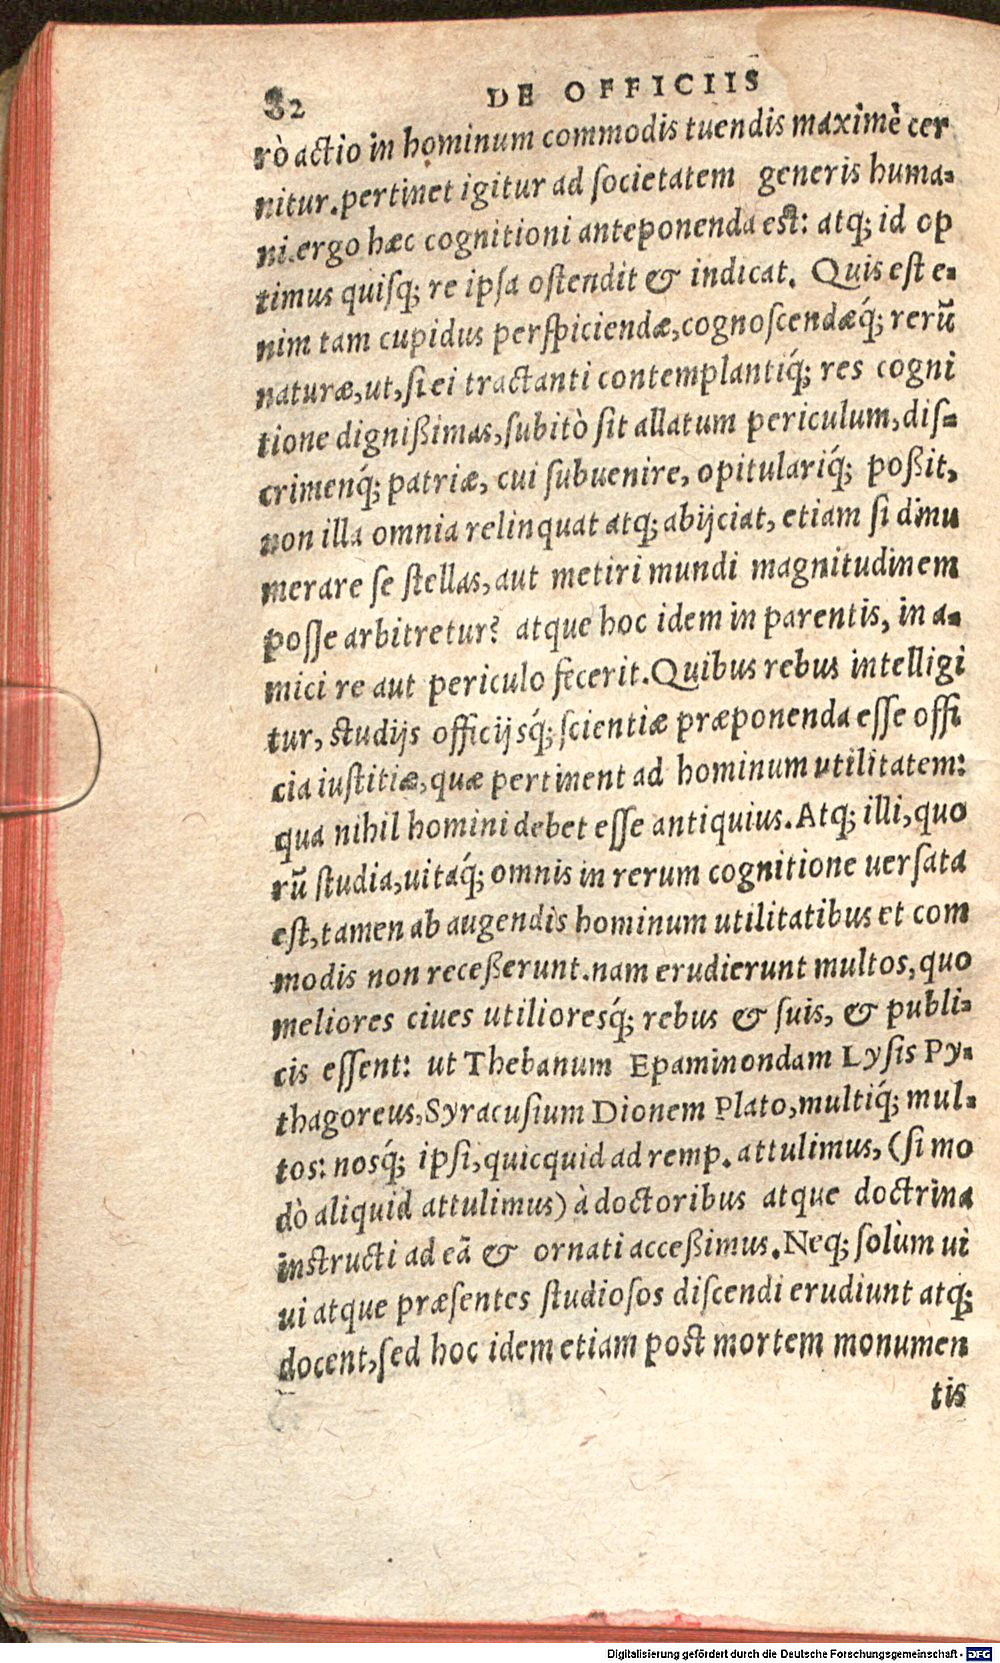 82 DE OFFICIIS
rò actio in hominum commodis tuendis maximè cer
nitur. pertinet igitur ad societatem generis huma-
ni. ergo hæc cognitioni anteponenda est: atq; id op
timus quisq; re ipsa ostendit & indicat. Quis est e-
nim tam cupidus perspiciendæ, cognoscendæq́; rerū
naturæ, ut, si ei tractanti contemplantiq́; res cogni
tione dignißimas, subitò sit allatum periculum, dis-
crimenq́; patriæ, cui subuenire, opitulariq́; poßit,
non illa omnia relinquat atq; abijciat, etiam si dinu
merare se stellas, aut metiri mundi magnitudinem
posse arbitretur? atque hoc idem in parentis, in a-
mici re aut periculo fecerit. Quibus rebus intelligi
tur, studijs officijsq́; scientiæ præponenda esse offi
cia iustitiæ, quæ pertinent ad hominum utilitatem:
qua nihil homini debet esse antiquius. Atq; illi, quo
rū studia, uitaq́; omnis in rerum cognitione uersata
est, tamen ab augendis hominum utilitatibus et com
modis non receßerunt. nam erudierunt multos, quo
meliores ciues utilioresq́; rebus & suis, & publi-
cis essent: ut Thebanum Epaminondam Lysis Py-
thagoreus, Syracusium Dionem Plato, multiq́; mul-
tos: nosq́; ipsi, quicquid ad remp. attulimus, (si mo
dò aliquid attulimus) à doctoribus atque doctrina
instructi ad eā & ornati acceßimus. Neq; solùm ui
ui atque præsentes studiosos discendi erudiunt atq;
docent, sed hoc idem etiam post mortem monumen
tis
Digitalisierung gefördert durch die Deutsche Forschungsgemeinschaft - DFG